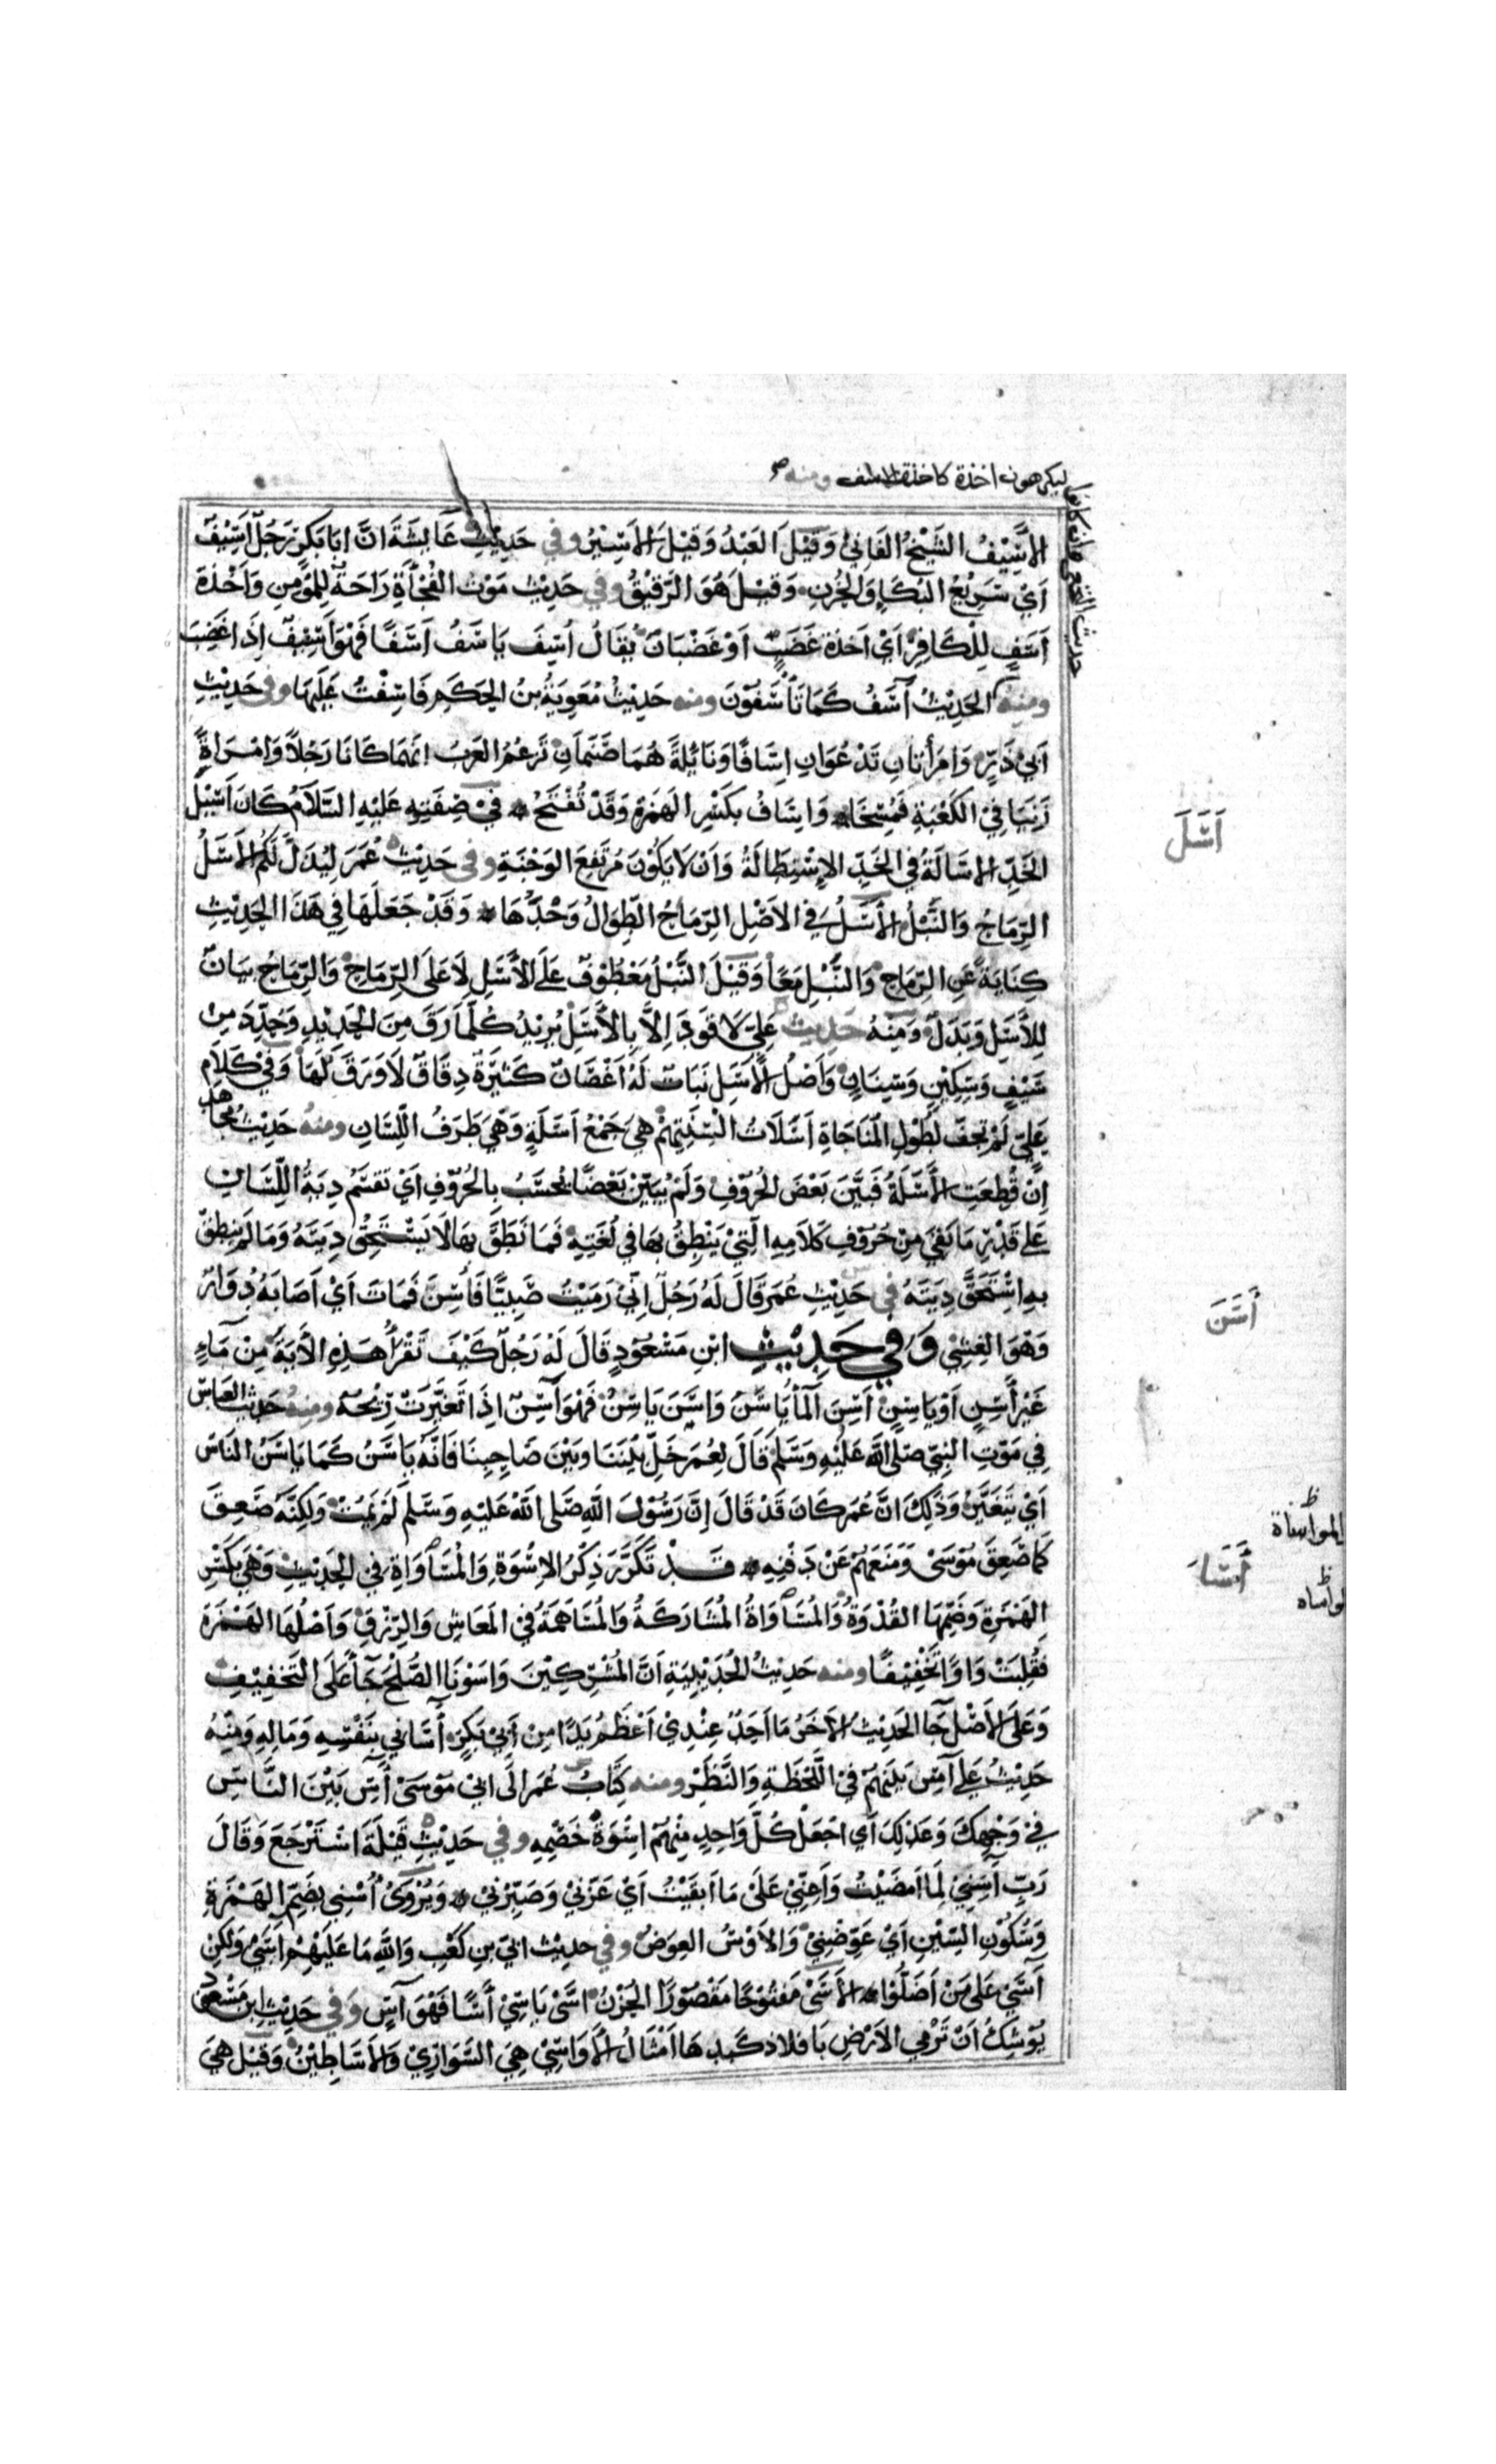 ليكرهون اخذة كاخذة الاسف ومنه
حديث النخعي ان كانوا
الاَسِيْفُ الشَّيْخُ الفَانِيْ وَقِيْلَ العَبْدُ وَقِيْلَ الاَسِيْرُ وفي حَدِيْثِ عَايشَةَ انَّ ابَا بَكرٍ رَجُلٌ اَسِيْفٌ
اَيْ سَرِيْعُ البُكَاءِ وَالحُزْنِ وَقِيْلَ هُوَ الرَّقِيْقُ وفي حَدِيْث مَوْت الفُجْأَةِ رَاحَةٌ لِلمُؤمِنِ وَاَخْذَة
اَسَفٍ لِلْكَافِرِ اَيْ اَخذَة غَضَبٍ اَوْ غَضْبَانَ يُقَالُ اَسِفَ يَاسَفُ اَسَفًا فَهُوَ اَسِفٌ اِذَا غَضِبَ
ومنه الحَدِيْثُ آسَفُ كَمَا تَأْسَفُوْنَ ومنه حَدِيْثُ مُعَوِيَةُ بنُ الحَكَمِ فَاسِفْتُ عَلَيهَا وفى حَدِيْثِ
اَبيْ ذَرٍّ وَامرَأتَانِ تَدْعُوَانِ اِسَافًا وَنَايُلَةً هُمَا صَنَمَانِ تَزعُمُ العَرَبُ انَّهمَا كَانَا رَجُلاً وَامْرَاةً
زَنَيَا فِي الكَعْبَةِ فَمُسِخَا وَاِسَافُ بكَسْرِ الهَمزَةِ وَقَدْ تُفْتَحُ في صِفَتِهِ عَلَيْهِ السَّلاَمُ كَانَ اَسِيْلَ
الخَدِّ الاسَالَةُ في الخَدِّ الاِسْتِطَالَةُ وَاَنْ لاَ يَكُوْنَ مُرْتَفِعَ الوَجْنَةِ وفى حَدِيْث عُمَرَ لِيُذَلِّ لَكُمُ الاَسَلُ
الرِّمَاحُ وَالنَّبْلُ الاَسَلُ في الاَصْلِ الرِّمَاحُ الطِّوَالُ وَحْدَهَا وَقَدْ جَعَلَهَا فِي هَذَا الحَدِيْثِ
كِنَايَةً عَنِ الرِّمَاحِ وَالنَّبْلِ مَعًا وَقِيْلَ النَّبْلُ مَعْطُوْفٌ عَلى الاَسَلِ لاَ عَلَى الرِّمَاحِ وَالرِّمَاحُ بيَانٌ
لِلاَسَلِ وَبَدَلٌ وَمِنْهُ حَدِيث عَلِيّ لاَ قَوَدَ اِلاَّ بِالاَسَلِ يُرِيْدُ كُلَّمَا رَقَّ مِنَ الحَدِيْدِ وَحُدِّدَ مِنْ
سَيْفٍ وَسِكِيْنٍ وَسِنَانٍ وَاَصْلُ الاَسَلِ نَبَاتٌ لَهُ اَغْصَانٌ كَثِيْرَةٌ دِقَاقٌ لاَ وَرَقَ لَهَا وَفِيْ كَلاَمِ
عَلِيّ لَمْ تَجِفَّ لِطُوْلِ المُنَاجَاةِ اَسَلاَتُ اَلْسِنَتِهِمْ هِيَ جَمْعُ اَسَلَةٍ وَهِيَ طَرَفُ اللِّسَانِ ومنه حَدِيْثُ مُجَاهِد
اِنْ قُطِعَتِ الاَسَلَةُ فَبَيَّنَ بَعْضَ الحُرُوْفِ وَلَمْ يُبَيِّنْ بَعْضًا يُحسَبُ بِالحُرُوْفِ اَيْ تُقْسَمُ دِيَةُ اللِّسَانِ
عَلى قَدْرِ مَا بَقِيَ مِنْ حُرُوْفِ كَلاَمِهِ الَّتِيْ يَنْطِقُ بِهَا في لُغَتِهِ فَمَا نَطَقَ بِهَا لاَ يَسْتَحِقُّ دِيَتَهُ وَمَا لَمْ يَنطِقْ
بِهِ اسْتَحَقَّ دِيَتَهُ في حَدِيْثِ عُمَرَ قَالَ لَهُ رَجُلٌ اِنّيْ رَمَيْتُ ضَبيًّا فَاَسِنَ فَمَاتَ اَيْ اَصَابَهُ دُوَارٌ
وَهْوَ الغِشْي وَفِي حَدِيْثِ ابْنِ مَسْعُوْدٍ قَالَ لَهُ رَجُلٌ كَيْفَ تَقْرَأُ هَذِهِ الاَيَةَ مِنْ مَآءٍ
غَيْرِ اٰسِنٍ اَوْ يَاسِنٍ اَسِنَ الْمآءُ يَاسَنُ وَاَسَنَ يَاسِنُ فَهُوَ اٰسِنٌ اِذَا تَغَيَّرَتْ رِيْحُهُ ومنهُ حَدِيْث العَبَّاسِ
فِي مَوْتِ النَّبِيّ صَلى الله عَليْهِ وَسَلَّمَ قَالَ لِعُمَرَ خَلِّ بَيْنَنَا وبَيْنَ صَاحِبِنَا فَاِنَّهُ يَاسَنُ كَمَا يَاسَنُ النَاسُ
اَيْ يَتَغَيَّرُ وَذَلِكَ انَّ عُمَرَ كَانَ قَدْ قَالَ اِنَّ رَسُوْلَ اللهِ صَلى اللهُ عَليْهِ وَسَلَّمَ لَمْ يَمُتْ وَلَكِنَّهُ صَعِقَ
كَمَا صَعِقَ مُوْسَىْ وَمَنَعَهُمْ عَنْ دَفْنِهِ قَدْ تَكَرَّرَ ذِكْرُ الاِسْوَةِ وَالمُسَاوَاةِ فِي الحَدِيْثِ وَهْيَ بكَسْرِ
الهَمْزَةِ وَضَمِّهَا القُدْوَةُ وَالمُسَاوَاةُ المُشَارَكَةُ وَالمُسَاهَمَةُ فِي المَعَاشِ وَالرِّزْقِ وَاَصْلُهَا الهَمْزَة
فَقُلِبَتْ وَاوًا تَخْفِيْفًا ومنه حَدِيْثُ الحُدَيْبِيَةِ اَنَّ المُشْرِكِيْنَ وَاسَوْنَا الصُّلْحَ جَآءَ عَلَى التَخفِيْفِ
وَعَلَى الاَصْلِ جَا الحَدِيْثُ الاَخَرُ مَا اَحَدٌ عِنْدِيْ اَعْظَمُ يَدًا مِنْ اَبِيْ بَكرٍ اٰسَانِي بِنَفْسِهِ وَمَالِهِ وَمِنْهُ
حَدِيْثُ عَلى اٰسِ بَيْنَهُمْ فِي اللَّحْظَةِ وَالنَّظَرِ ومنه كِتَابُ عُمَر الَى ابِي مُوْسَىْ اٰسِ بَيْنَ النَّاسِ
فِي وَجْهِكَ وَعَدْلِكَ اَي اجْعَلْ كُلَّ وَاحِدٍ مِنْهُمْ اُسْوَةُ خَصْمِهِ وفي حَدِيْثِ قَيْلَةَ اسْتَرْجَعَ وَقَالَ
رَبِّ آسِنِيْ لِمَا اَمْضَيْتَ وَاَعِنِّيْ عَلَىْ مَا اَبقَيْتَ اَيْ عَزِّنِيْ وَصَبِّرْنِيْ وَيُرْوَىْ اُسْنِي بِضَمِّ الهَمْزَةِ
وَسُكُوْنِ السِّيْنِ اَيْ عَوِّضْنِيْ وَالاَوْسُ العِوَضُ وفي حدِيْث ابَيّ بنِ كَعْبٍ وَاللهِ مَا عَلَيْهِمْ اٰسَىْ وَلَكِنْ
آسَىْ عَلَى مَنْ اَضَلُّوْا الاَسَىْ مَفْتُوْحًا مَقْصُوْرًا الحُزْنُ اَسَىْ يَاسِيْ اَسًا فَهْوَ اٰسٍ وَفي حَدِيْثِ ابن مَسْعُود
يُوْشِكُ اَنْ تَرْمِي الاَرْضِ بَافلاذ كَبِدِهَا اَمْثَالُ الاَوَاسِيْ هِيَ السَّوَارِيْ وَالاَسَاطِيْنُ وَقِيْلَ هِيَ
اَسَلَ
أَسَنَ
المواساة
ظ
أَسَا
ظ